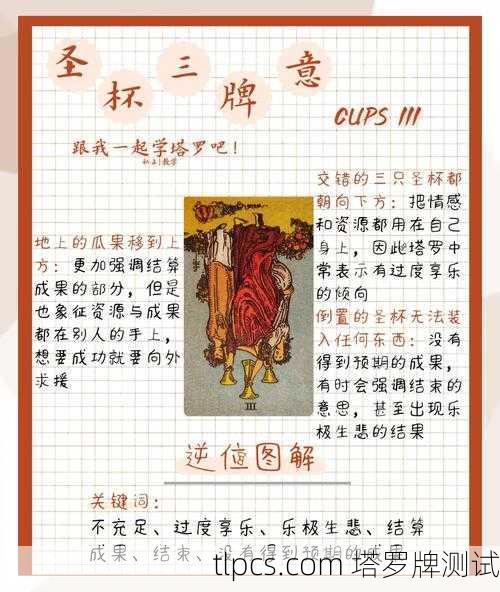 圣杯三牌意
CUPS III
跟我一起学塔罗吧！
地上的瓜果移到上
方：更加强调结算
成果的部分，但是
也象征资源与成果
都在别人的手上，
想要成功就要向外
求援
交错的三只圣杯都
朝向下方：把情感
和资源都用在自己
身上，因此塔罗中
常表示有过度享乐
的倾向
倒置的圣杯无法装
入任何东西：没有
得到预期的成果，
有时会强调结束的
意思，甚至出现乐
极生悲的结果
III
逆位图解
关键词：
不充足、过度享乐、乐极生悲、结算
成果、结束、没有得到预期的成果
tlpcs.com 塔罗牌测试